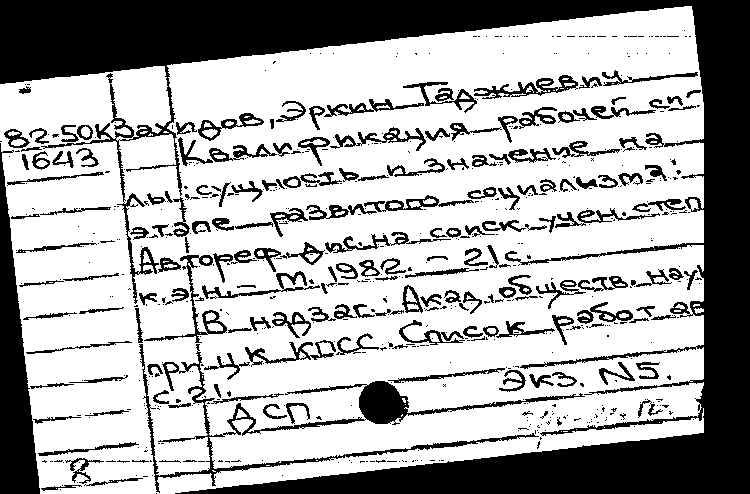 82-50К Захидов, Эркин Таджиевич.
1643 Квалификация рабочей си-
лы: сущность и значение на
этапе развитого социализма:
Автореф. дис. на соиск. учен. степ
к.э.н. - М., 1982. - 21с.
В надзаг.: Акад. обществ. наук
при ЦК КПСС. Список работ ав
с. 21.
ДСП. Экз. N5.
8